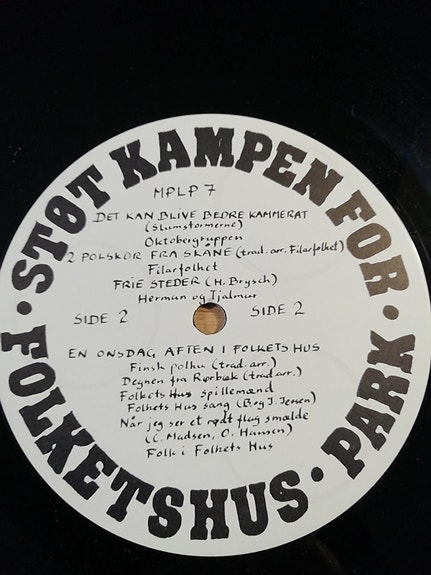 STØT KAMPEN FOR · FOLKETSHUS · PARK ·
MPLP 7
DET KAN BLIVE BEDRE KAMMERAT
(Slumstormerne)
Oktobergruppen
2 POLSKOR FRA SKÅNE (trad. arr. Filarfolket)
Filarfolket
FRIE STEDER (H. Brysch)
Herman og Tjalmar
SIDE 2 SIDE 2
EN ONSDAG AFTEN I FOLKETS HUS
Finsk polka (trad. arr.)
Degnen fra Rørbæk (trad. arr.)
Folkets Hus spillemænd
Folkets Hus sang (B og J. Jensen)
Når jeg ser et rødt flag smælde
(C. Madsen, O. Hansen)
Folk i Folkets Hus